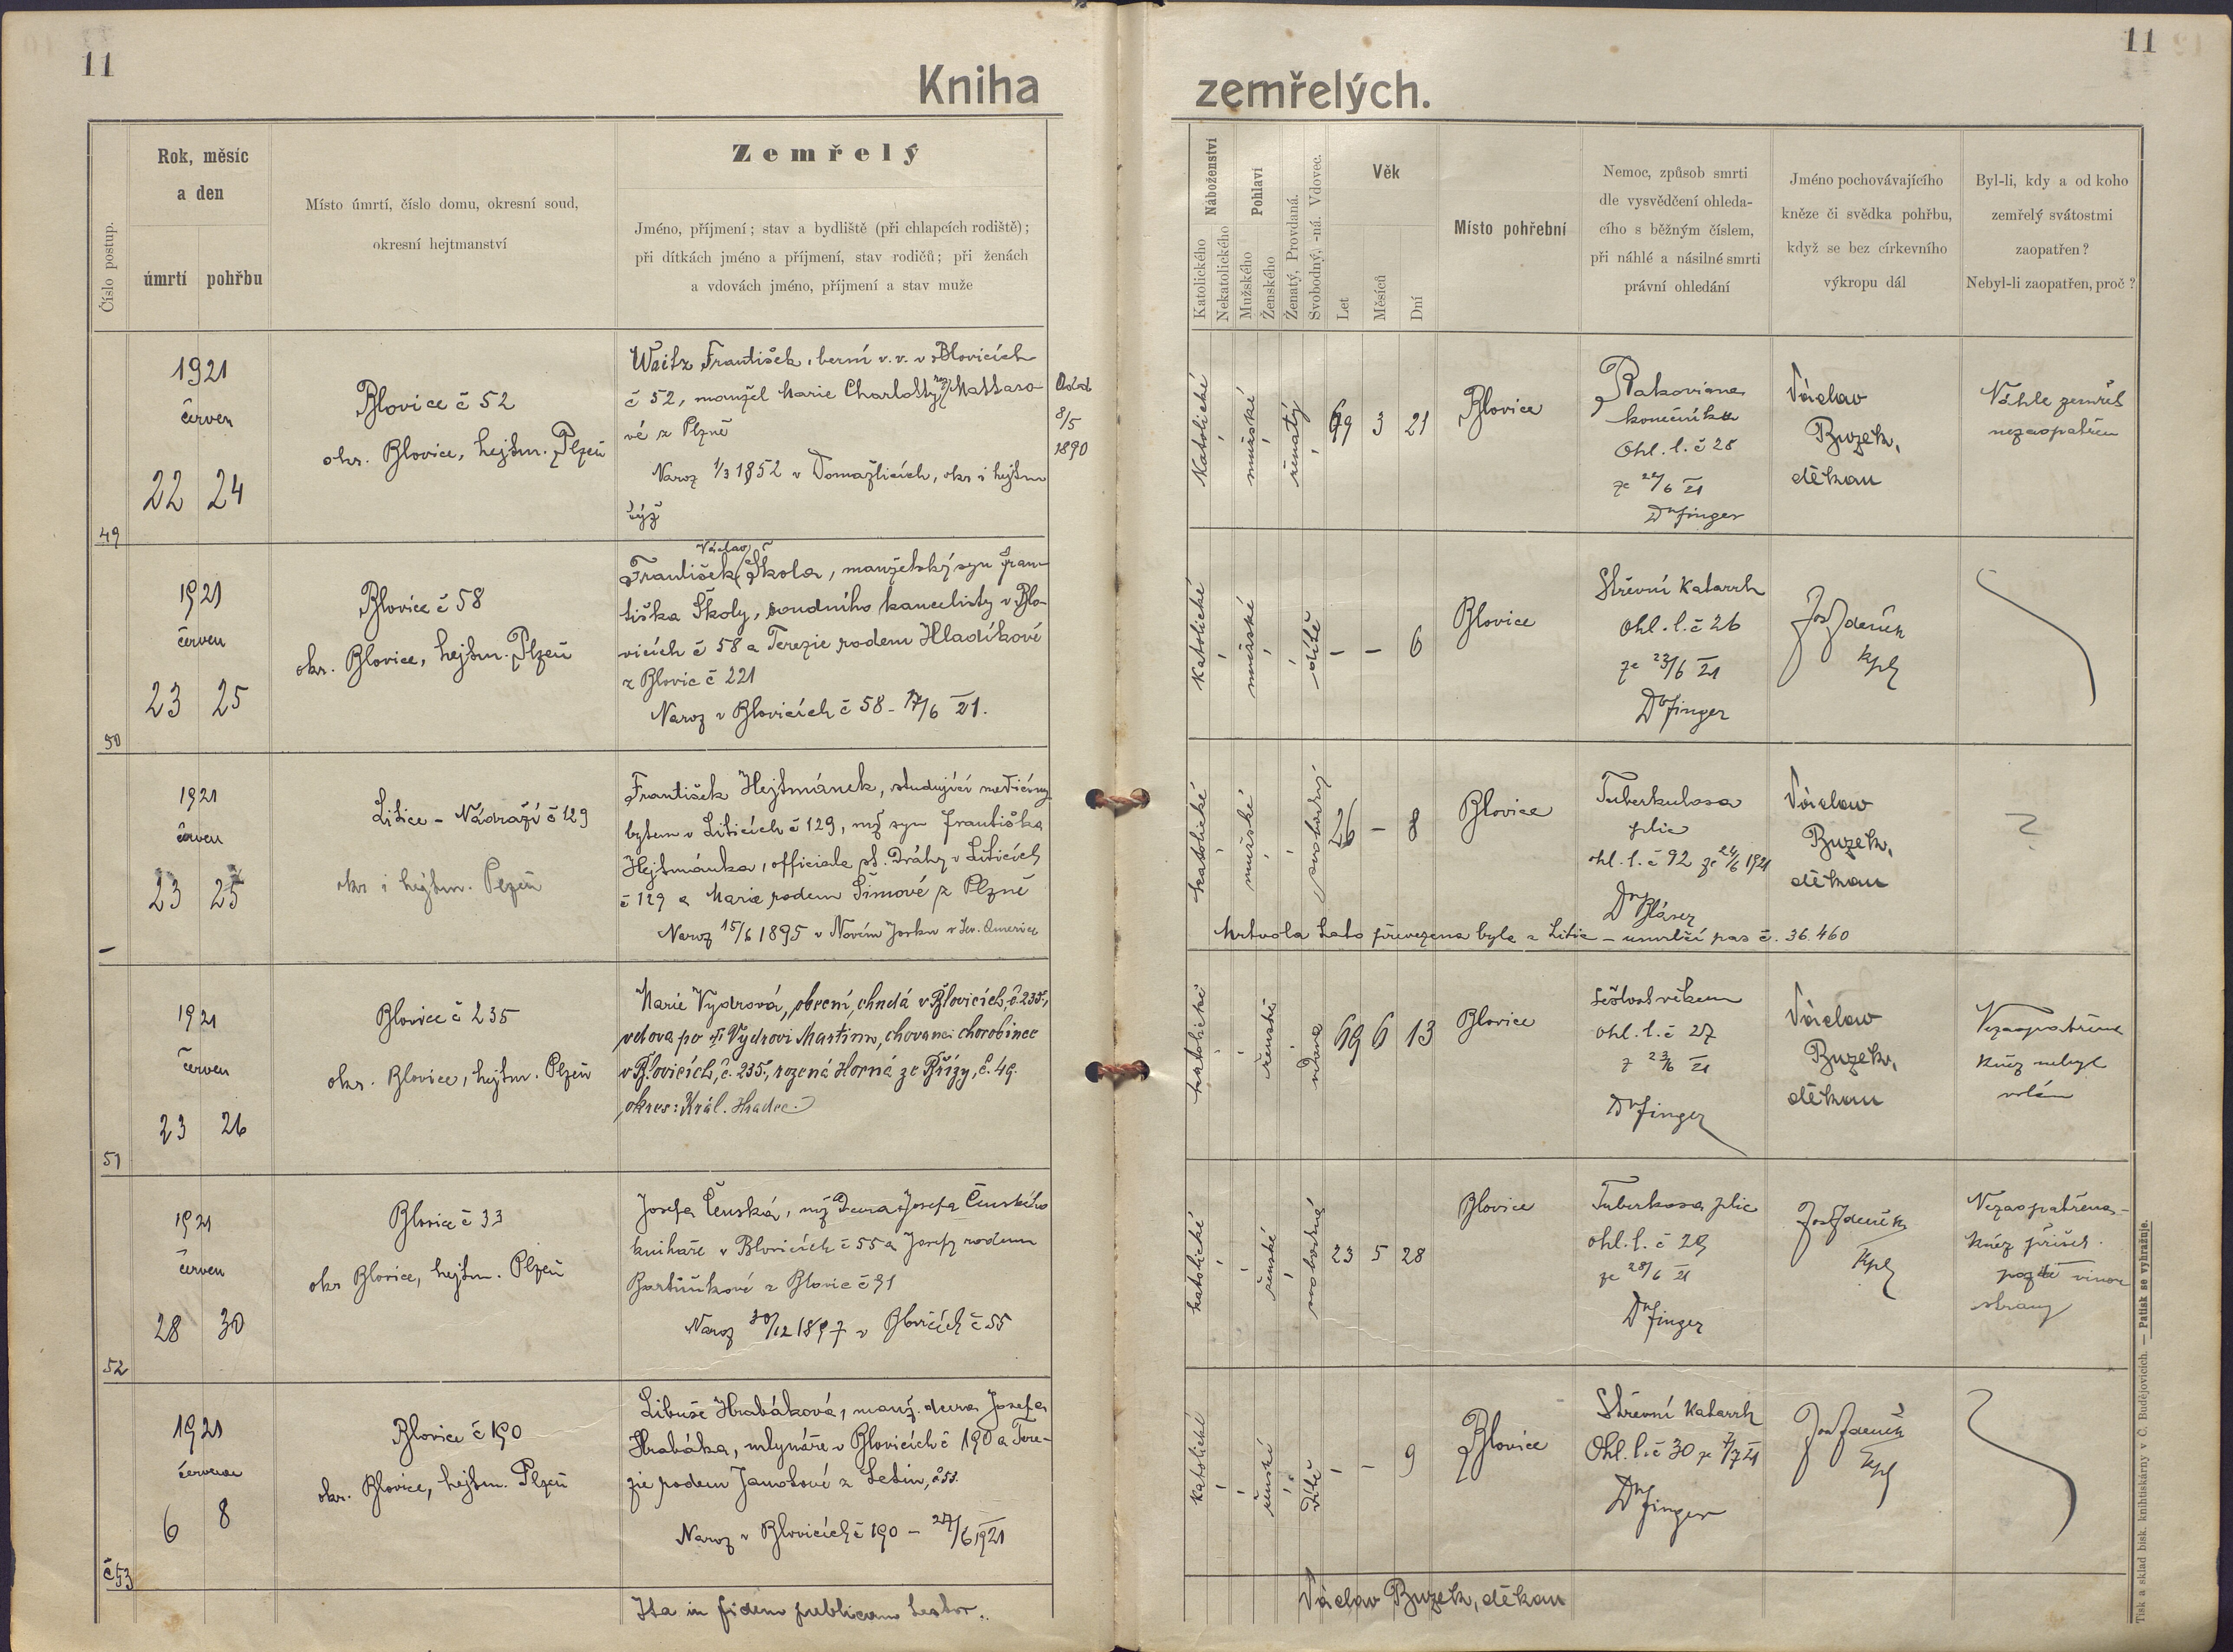 11
11
Kniha zemřelých.
Číslo postup.
Rok, měsíc
a den
úmrtí pohřbu
Místo úmrtí, číslo domu, okresní soud,
okresní hejtmanství
Zemřelý
Jméno, příjmení; stav a bydliště (při chlapcích rodiště);
při dítkách jméno a příjmení, stav rodičů; při ženách
a vdovách jméno, příjmení a stav muže
Náboženství
Katolického
Nekatolického
Pohlaví
Mužského
Ženského
Ženatý, Provdaná.
Svobodný, -ná. Vdovec.
Věk
Let
Měsíců
Dní
Místo pohřební
Nemoc, způsob smrti
dle vysvědčení ohleda-
cího s běžným číslem,
při náhlé a násilné smrti
právní ohledání
Jméno pochovávajícího
kněze či svědka pohřbu,
když se bez církevního
výkropu dál
Byl-li, kdy a od koho
zemřelý svátostmi
zaopatřen?
Nebyl-li zaopatřen, proč?
49
1921
červen
22 24
Blovice č 52
okr. Blovice, hejtm. Plzeň
Waitz František, berní v. v. v Blovicích
č 52, manžel Marie Charlotty roz. Mattaso-
vé z Plzně
Naroz 1/3 1852 v Domažlicích, okr i hejtm
týž
Oddat
8/5
1890
Katolické
mužské
ženatý
69 3 21
Blovice
Rakovina
konečníku
Ohl. l. č 28
ze 22/6 21
Dr Finger
Václav
Buzek,
děkan
Náhle zemřel
nezaopatřen
50
1921
červen
23 25
Blovice č 58
okr. Blovice, hejtm. Plzeň
Václav
František Škola, manželský syn Fran-
tiška Školy, soudního kancelisty v Blo-
vicích č 58 a Terezie rodem Hladíkové
z Blovic č 221
Naroz v Blovicích č 58 - 17/6 21.
Katolické
mužské
dítě
- - 6
Blovice
Střevní Katarrh
Ohl. l. č 26
ze 23/6 21
Dr Finger
Jos Zdeněk
kpl
1921
červen
23 25
Litice - Nádraží č 129
okr i hejtm. Plzeň
František Hejtmánek, studující medicíny
bytem v Liticích č 129, mž syn Františka
Hejtmánka, officiala st. Dráhy v Liticích
č 129 a Marie rodem Šimové z Plzně
Naroz 15/6 1895 v Novém Yorku v Sev. Americe
katolické
mužské
svobodný
26 - 8
Blovice
Tuberkulosa
plic
ohl. l. č 92 ze 24/6 1921
Dr Glaser
Václav
Buzek,
děkan
?
Mrtvola tato převezena byla z Litic - umrlčí pas č. 36.460
51
1921
červen
23 26
Blovice č 235
okr. Blovice, hejtm. Plzeň
Marie Vydrová, obecní chudá v Blovicích, č. 235,
vdova po † Vydrovi Martinu, chovanci chorobince
v Blovicích, č. 235, rozená Horná ze Břízy, č. 49.
okres: Král. Hradec.
katolické
ženské
vdova
69 6 13
Blovice
Sešlost věkem
ohl. l. č 27
z 23/6 21
Dr Finger
Václav
Buzek,
děkan
Nezaopatřena
Kněz nebyl
volán
52
1921
červen
28 30
Blovice č 33
okr Blovice, hejtm. Plzeň
Josefa Čenská, mž Dcera Josefa Čenského
knihaře v Blovicích č 55 a Josefy rodem
Bartůňkové z Blovic č 31
Naroz 30/12 1897 v Blovicích č 55
katolické
ženské
svobodná
23 5 28
Blovice
Tuberkosa plic
ohl. l. č 29
ze 28/6 21
Dr Finger
Jos Zdeněk
kpl
Nezaopatřena -
Kněz přišel
pozdě vinou
strany
č 53
1921
červenec
6 8
Blovice č 190
okr. Blovice, hejtm. Plzeň
Libuše Hrabáková, manž. dcera Josefa
Hrabáka, mlynáře v Blovicích č 190 a Tere-
zie rodem Janotové z Letin, č 53.
Naroz v Blovicích č 190 - 27/6 1921
katolické
ženské
dítě
- - 9
Blovice
Střevní Katarrh
Ohl. l. č 30 ze 7/7 21
Dr Finger
Jos Zdeněk
kpl
Ita in fidem publicam testor.
Václav Buzek, děkan
Tisk a sklad bisk. knihtiskárny v Č. Budějovicích. — Patisk se vyhražuje.